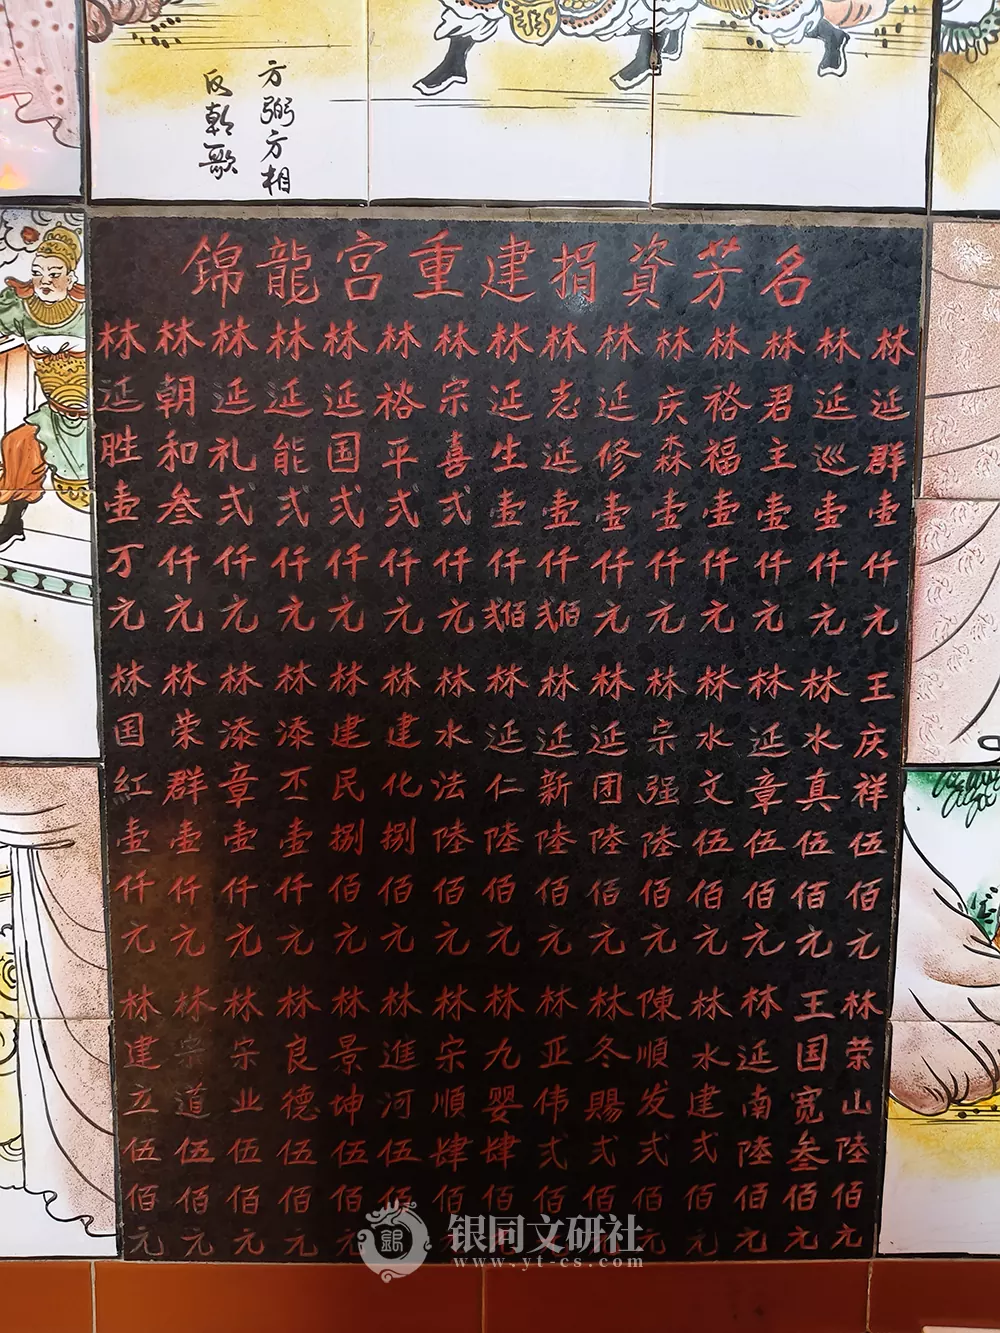 方弼方相
反朝歌
錦龍宫重建捐資芳名
林延胜壹万元
林朝和叁仟元
林延礼弍仟元
林延能弍仟元
林延国弍仟元
林裕平弍仟元
林宗喜弍仟元
林延生壹仟弍佰
林志延壹仟弍佰
林延修壹仟元
林庆森壹仟元
林裕福壹仟元
林君主壹仟元
林延巡壹仟元
林延群壹仟元
林国紅壹仟元
林荣群壹仟元
林添章壹仟元
林添丕壹仟元
林建民捌佰元
林建化捌佰元
林水法陸佰元
林延仁陸佰元
林延新陸佰元
林延团陸佰元
林宗强陸佰元
林水文伍佰元
林延章伍佰元
林水真伍佰元
王庆祥伍佰元
林建立伍佰元
林宗道伍佰元
林宗业伍佰元
林良德伍佰元
林景坤伍佰元
林進河伍佰元
林宗順肆佰元
林九婴肆佰元
林亚伟弍佰元
林冬賜弍佰元
陳順发弍佰元
林水建弍佰元
林延南陸佰元
王国宽叁佰元
林荣山陸佰元
银同文研社
www.yt-cs.com